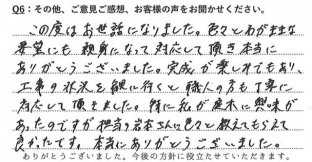 Q6：その他、ご意見ご感想、お客様の声をお聞かせください。
この度はお世話になりました。色々とわがままな
希望にも親身になって対応して頂き本当に
ありがとうございました。完成が楽しみでもあり、
工事の状況を観に行くと職人の方も丁寧に
対応して頂きました。特に私が庭木に興味が
あったのですが担当の岩本さんに色々と教えてもらえて
良かったです。本当にありがとうございました。
ありがとうございました。今後の方針に役立たせていただきます。